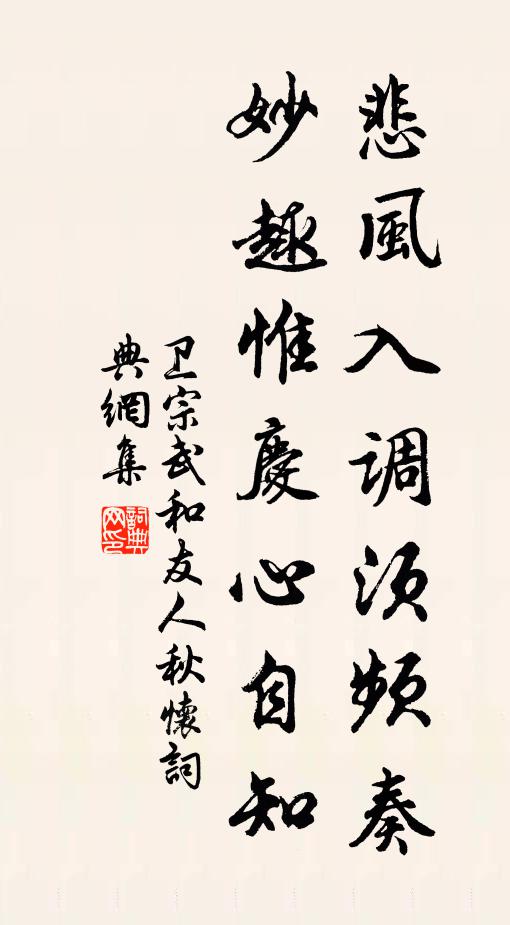 悲風入调须頻奏
妙趣惟慶心自知
卫宗武和友人秋懷詞
典網集
詞典
网印